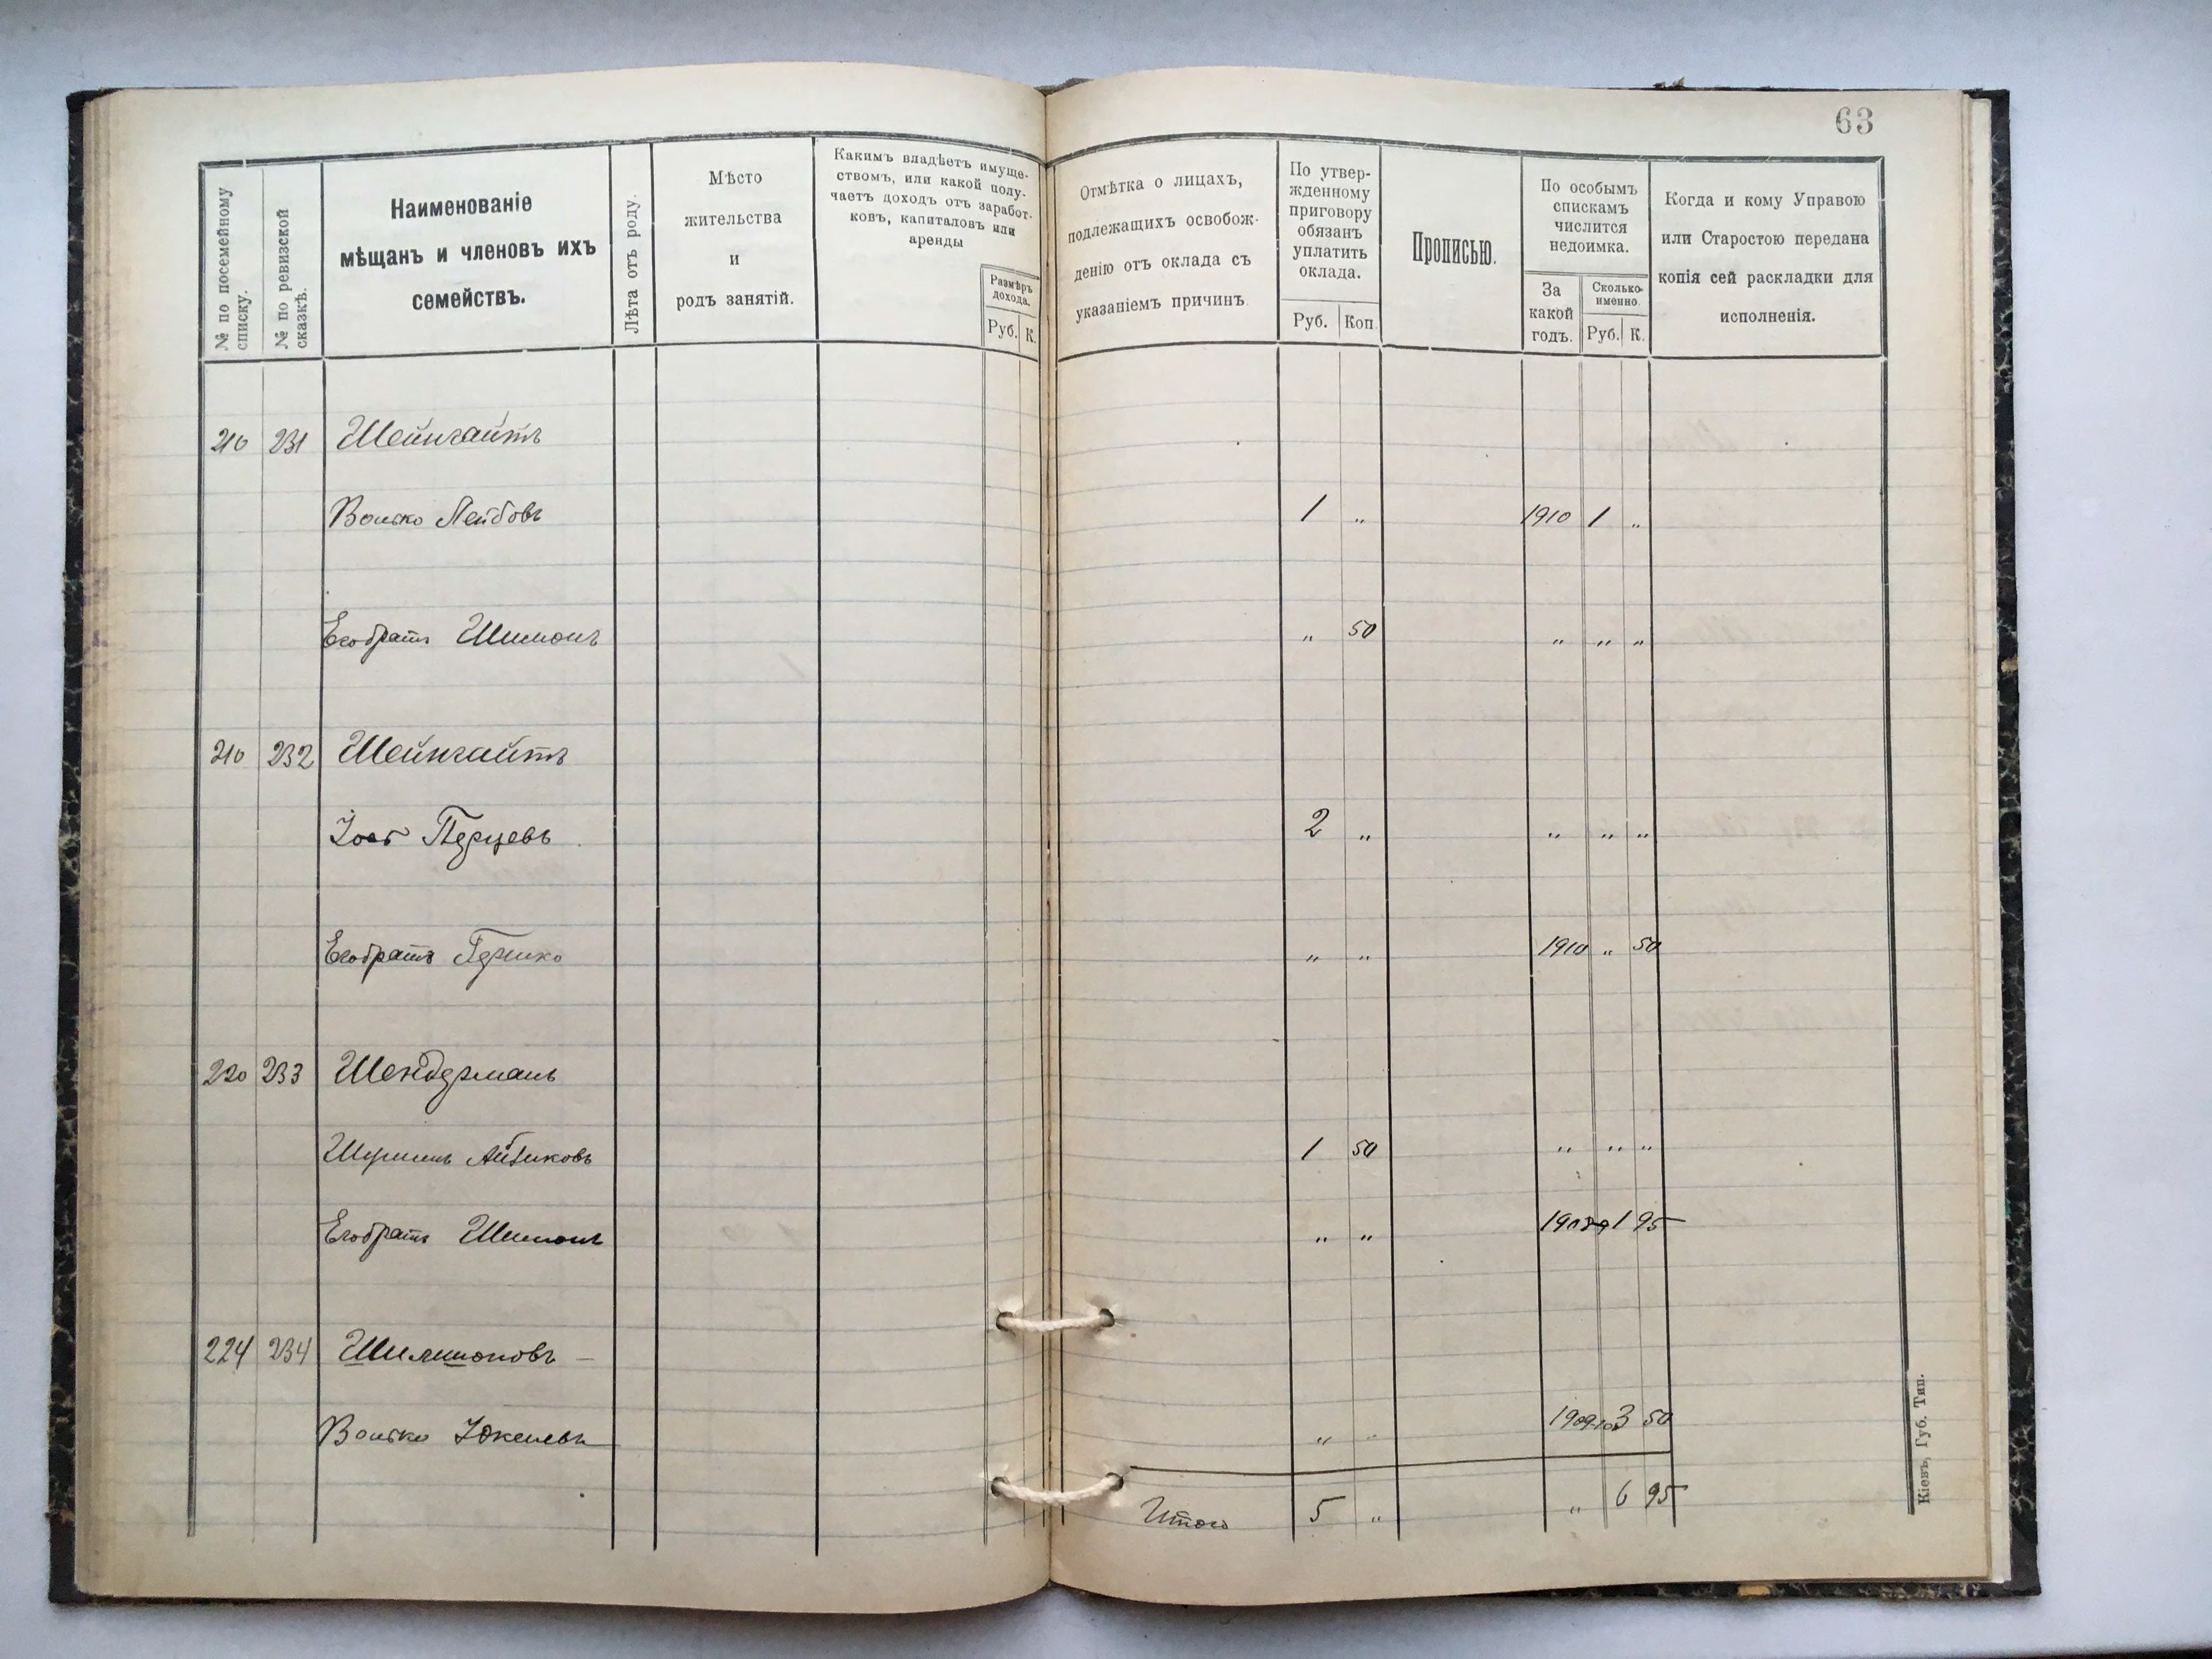 63
№ по посемейному списку.
№ по ревизской сказкѣ.
Наименованіе
мѣщанъ и членовъ ихъ
семействъ.
Лѣта отъ роду.
Мѣсто
жительства
и
родъ занятій.
Какимъ владѣетъ имуще-
ствомъ, или какой полу-
чаетъ доходъ отъ заработ-
ковъ, капиталовъ или
аренды
Размѣръ
дохода.
Руб. К.
Отмѣтка о лицахъ,
подлежащихъ освобож-
денію отъ оклада съ
указаніемъ причинъ.
По утвер-
жденному
приговору
обязанъ
уплатить
оклада.
Руб. Коп.
Прописью.
По особымъ
спискамъ
числится
недоимка.
За
какой
годъ.
Сколько-
именно.
Руб. К.
Когда и кому Управою
или Старостою передана
копія сей раскладки для
исполненія.
210 231 Шейнгайтъ
Волько Лейбовъ 1 „ 1910 1 „
Егобратъ Шимонъ „ 50 „ „ „
210 232 Шейнгайтъ
Перцевъ 2 „ „ „ „
Егобратъ Гершко „ „ 1910 „ 50
220 233 Шендерманъ
1 50 „ „ „
Егобратъ Шимонъ „ „ 1 95
224 234 Шилимоновъ
Волько „ „ 1909-10 3 50
Итого 5 „ „ 6 95
Кіевъ, Губ. Тип.